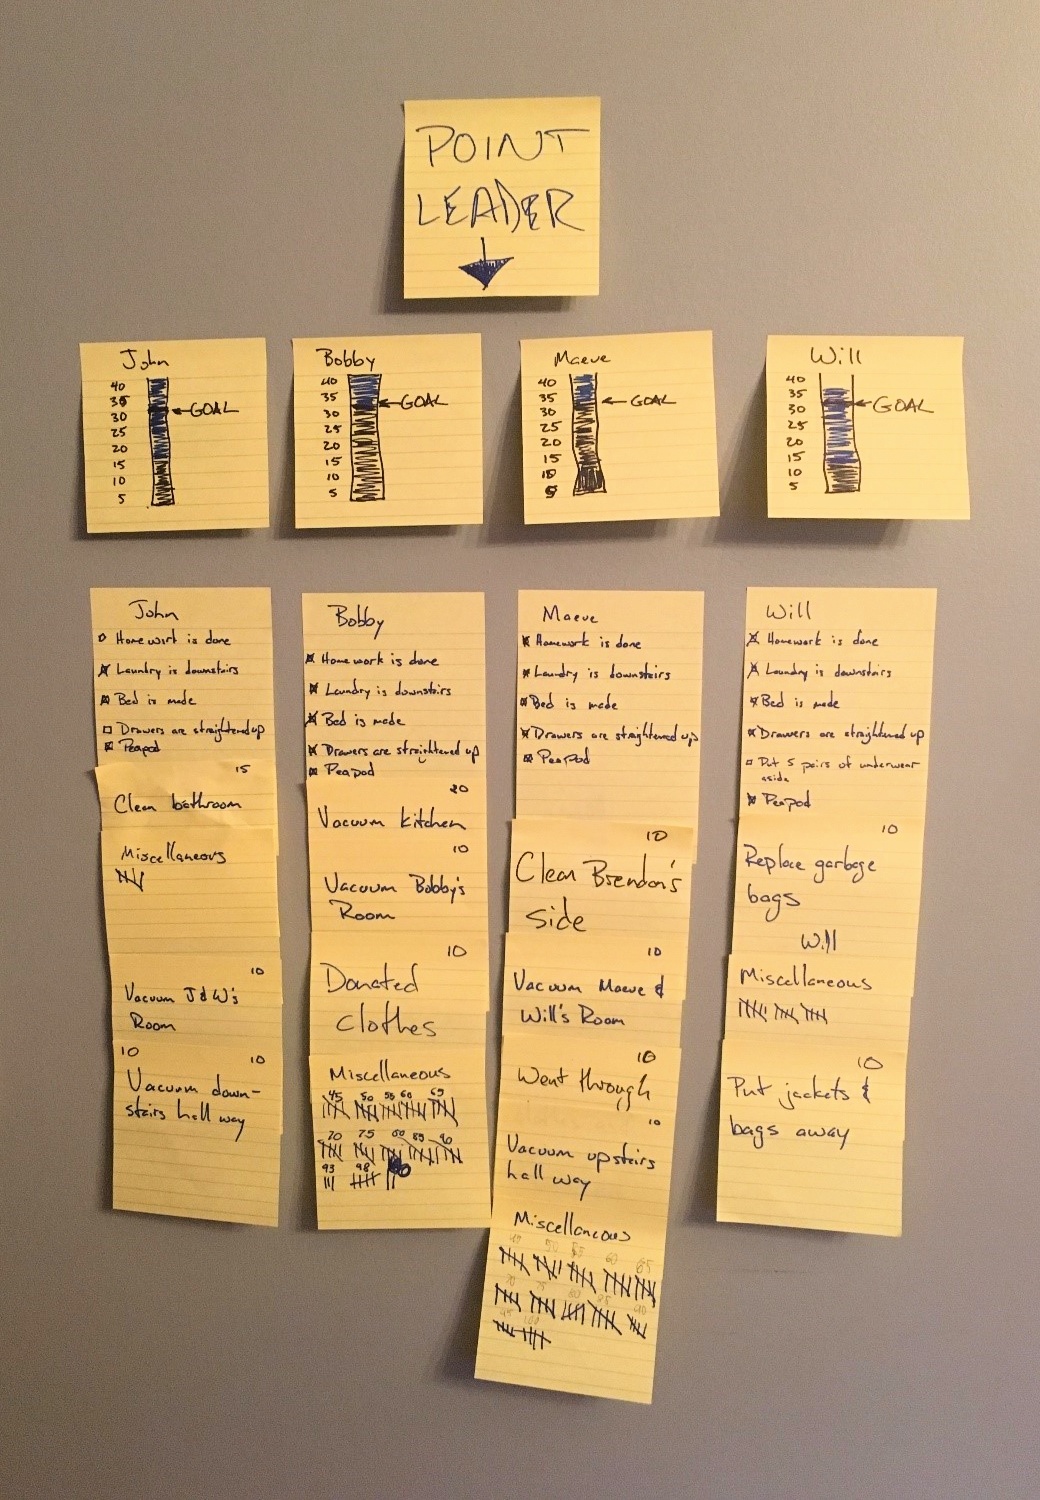 POINT
LEADER
John
40
35
30
25
20
15
10
5
GOAL
Bobby
40
35
30
25
20
15
10
5
GOAL
Maeve
40
35
30
25
20
15
10
5
GOAL
Will
40
35
30
25
20
15
10
5
GOAL
John
Homework is done
Laundry is downstairs
Bed is made
Drawers are straightened up
Peapod
15
Clean bathroom
Miscellaneous
10
Vacuum J & W's
Room
10 10
Vacuum down-
stairs hall way
Bobby
Homework is done
Laundry is downstairs
Bed is made
Drawers are straightened up
Peapod
20
Vacuum kitchen
10
Vacuum Bobby's
Room
10
Donated
clothes
Miscellaneous
45 50 55 60 65
70 75 80 85 90
93 98
Maeve
Homework is done
Laundry is downstairs
Bed is made
Drawers are straightened up
Peapod
10
Clean Brendan's
side
10
Vacuum Maeve &
Will's Room
10
Went through
10
Vacuum upstairs
hall way
Miscellaneous
50 55 60 65
70 75 80 85 90
95 100
Will
Homework is done
Laundry is downstairs
Bed is made
Drawers are straightened up
Put 5 pairs of underwear
aside
Peapod
10
Replace garbage
bags
Will
Miscellaneous
10
Put jackets &
bags away